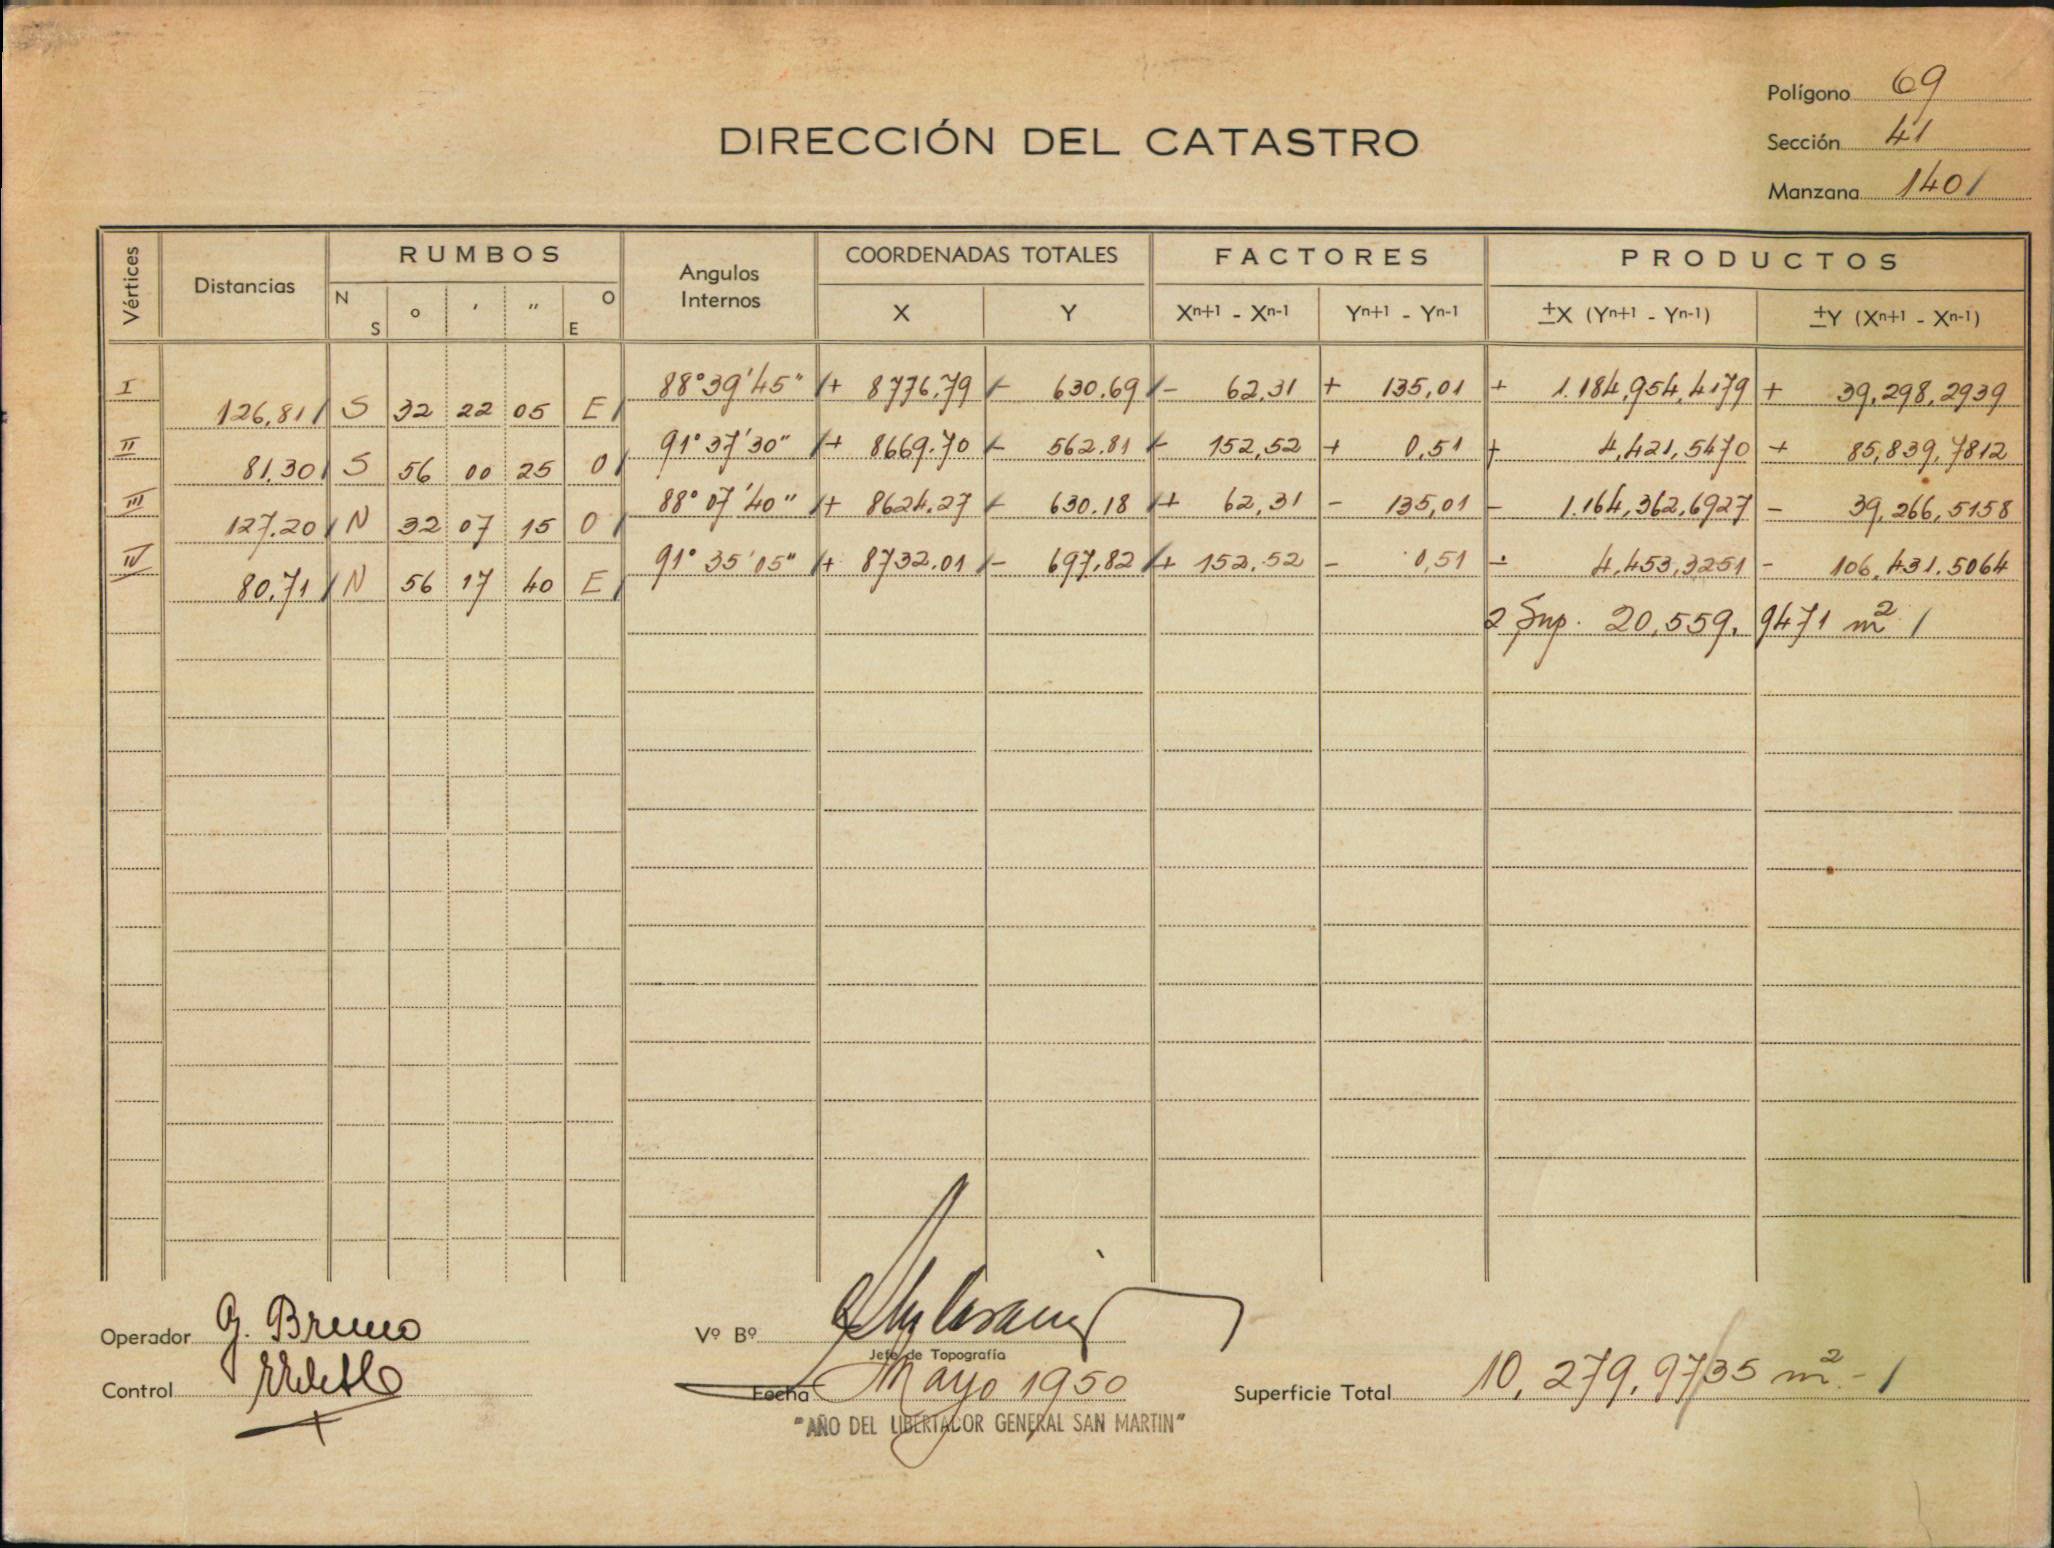 Polígono 69
DIRECCIÓN DEL CATASTRO
Sección 41
Manzana 140
Vértices Distancias RUMBOS Angulos Internos COORDENADAS TOTALES FACTORES PRODUCTOS
N S o ' " O E X Y Xn+1 - Xn-1 Yn+1 - Yn-1 ±X (Yn+1 - Yn-1) ±Y (Xn+1 - Xn-1)
I 88°39'45" + 8776.79 - 630.69 - 62,31 + 135,01 + 1.184,954,4179 + 39,298,2939
126,81 S 32 22 05 E
II 91°37'30" + 8669.70 - 562.81 - 152,52 + 0,51 + 4,421,5470 + 85,839,7812
81.30 S 56 00 25 O
III 88°07'40" + 8624.27 - 630.18 + 62,31 - 135,01 - 1.164,362,6927 - 39,266,5158
127.20 N 32 07 15 O
IV 91°35'05" + 8732.01 - 697,82 + 152,52 - 0,51 - 4,453,3251 - 106,431.5064
80,71 N 56 17 40 E
2 Sup. 20,559,9471 m²
Operador G. Bruno
Vº Bº
Jefe de Topografía
Control
Fecha Mayo 1950
Superficie Total 10,279,9735 m²-
"AÑO DEL LIBERTADOR GENERAL SAN MARTIN"